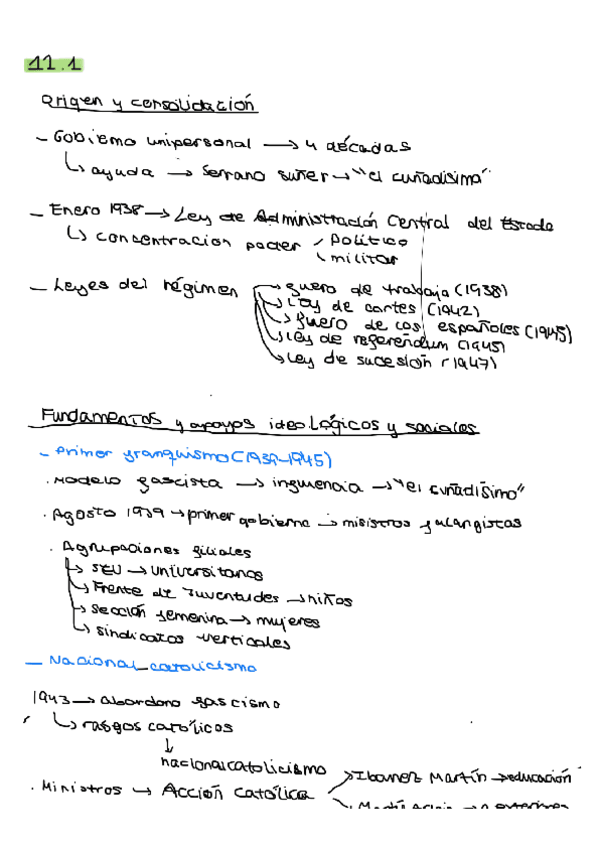 11.1
Origen y consolidación
- Gobierno unipersonal → 4 décadas
↳ ayuda → Serrano suñer → "el cuñadísimo"
- Enero 1938 → Ley de Administración Central del Estado
↳ concentracion poder / Político
\ militar
- Leyes del régimen → fuero de trabajo (1938)
→ Ley de cortes (1942)
→ fuero de los españoles (1945)
→ Ley de referendum (1945)
→ Ley de sucesión (1947)
Fundamentos y apoyos ideológicos y sociales
- Primer franquismo (1939-1945)
. Modelo fascista → influencia → "el cuñadísimo"
. Agosto 1939 → primer gobierno → misistros falangistas
. Agrupaciones filiales
↳ SEU → universitarios
↳ Frente de Juventudes → niños
↳ sección femenina → mujeres
↳ sindicatos verticales
- Nacional catolicismo
1943 → abandono fascismo
↳ rasgos católicos
↓
nacionalcatolicismo
. Ministros → Acción católica → Ibanez Martín → educación